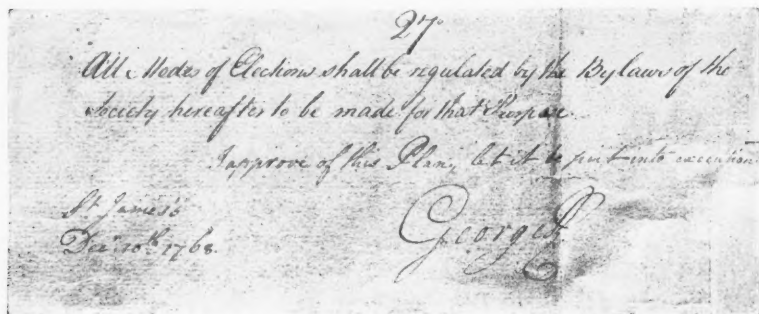 27
All Modes of Elections shall be regulated by the Bylaws of the
Society hereafter to be made for that Purpose
I approve of this Plan, let it be put into execution
St James's
Decr 10th 1768.
George R.